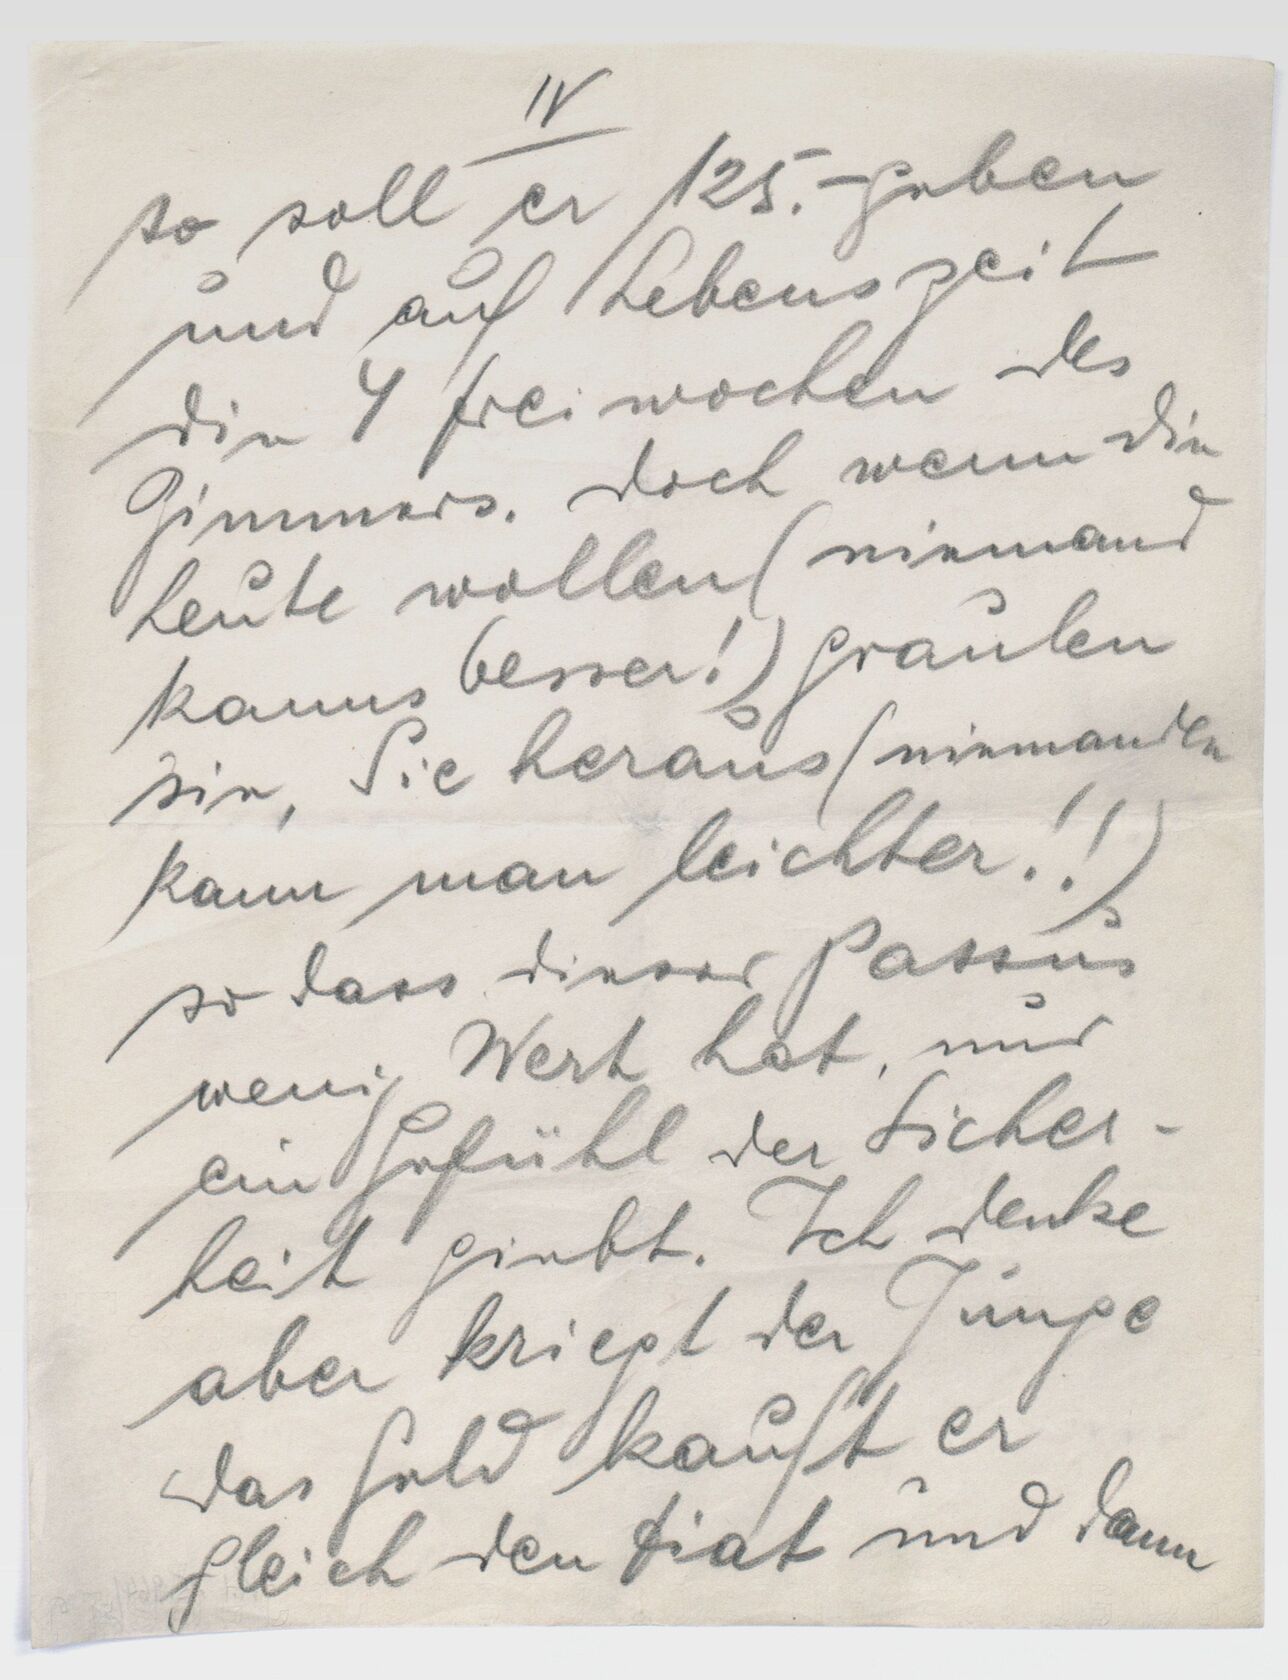 IV
so soll er 125.- geben
und auf Lebenszeit
die 4 freiwochen des
Zimmers. Doch wenn die
Leute wollen (niemand
kanns besser!) graulen
sie, Sie heraus (niemanden
kann man leichter!!)
so dass dieser Passus
wenig Wert hat, nur
ein Gefühl der Sicher-
heit giebt. Ich denke
aber kriegt der Junge
das Geld kauft er
gleich den Fiat und dann